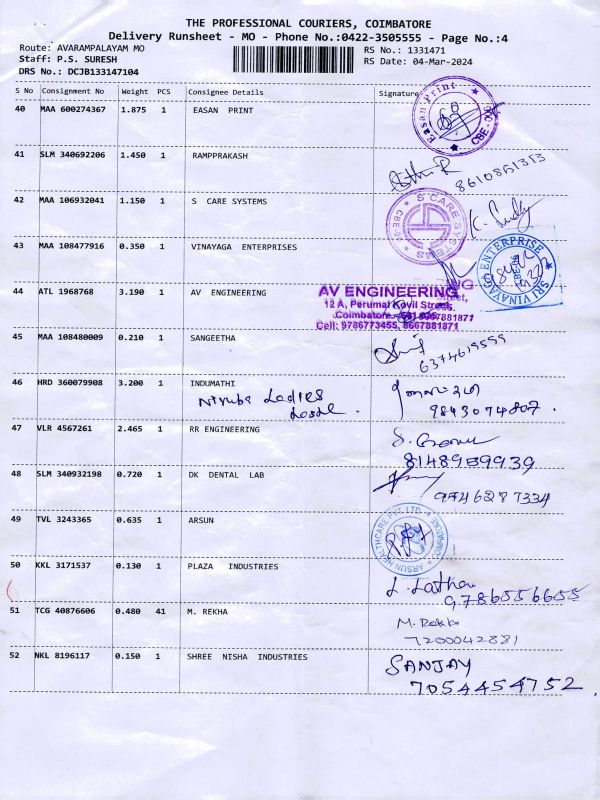 THE PROFESSIONAL COURIERS, COIMBATORE
Delivery Runsheet - MO - Phone No.:0422-3505555 - Page No.:4
Route: AVARAMPALAYAM MO
RS No.: 1331471
Staff: P.S. SURESH
RS Date: 04-Mar-2024
DRS No.: DCJB133147104
S No Consignment No Weight PCS Consignee Details Signature
40 MAA 600274367 1.875 1 EASAN PRINT
Easan Print CBE-006
41 SLM 340692206 1.450 1 RAMPPRAKASH
8610861313
42 MAA 106932041 1.150 1 S CARE SYSTEMS
S CARE SYSTEMS
43 MAA 108477916 0.350 1 VINAYAGA ENTERPRISES
SRI VINAYAGA ENTERPRISE
44 ATL 1968768 3.190 1 AV ENGINEERING
AV ENGINEERING
12 A, Perumal Kovil Street,
Cell: 9786773455, 8667881871
45 MAA 108480009 0.210 1 SANGEETHA
6374619599
46 HRD 360079908 3.200 1 INDUMATHI
Ladies
9843074807.
47 VLR 4567261 2.465 1 RR ENGINEERING
8148909939
48 SLM 340932198 0.720 1 DK DENTAL LAB
9746287334
49 TVL 3243365 0.635 1 ARSUN
ARSUN HEALTHCARE PVT. LTD
50 KKL 3171537 0.130 1 PLAZA INDUSTRIES
L. Latha
9786556655
51 TCG 40876606 0.480 41 M. REKHA
M. Rekha
7200042881
52 NKL 8196117 0.150 1 SHREE NISHA INDUSTRIES
SANJAY
7054454752.